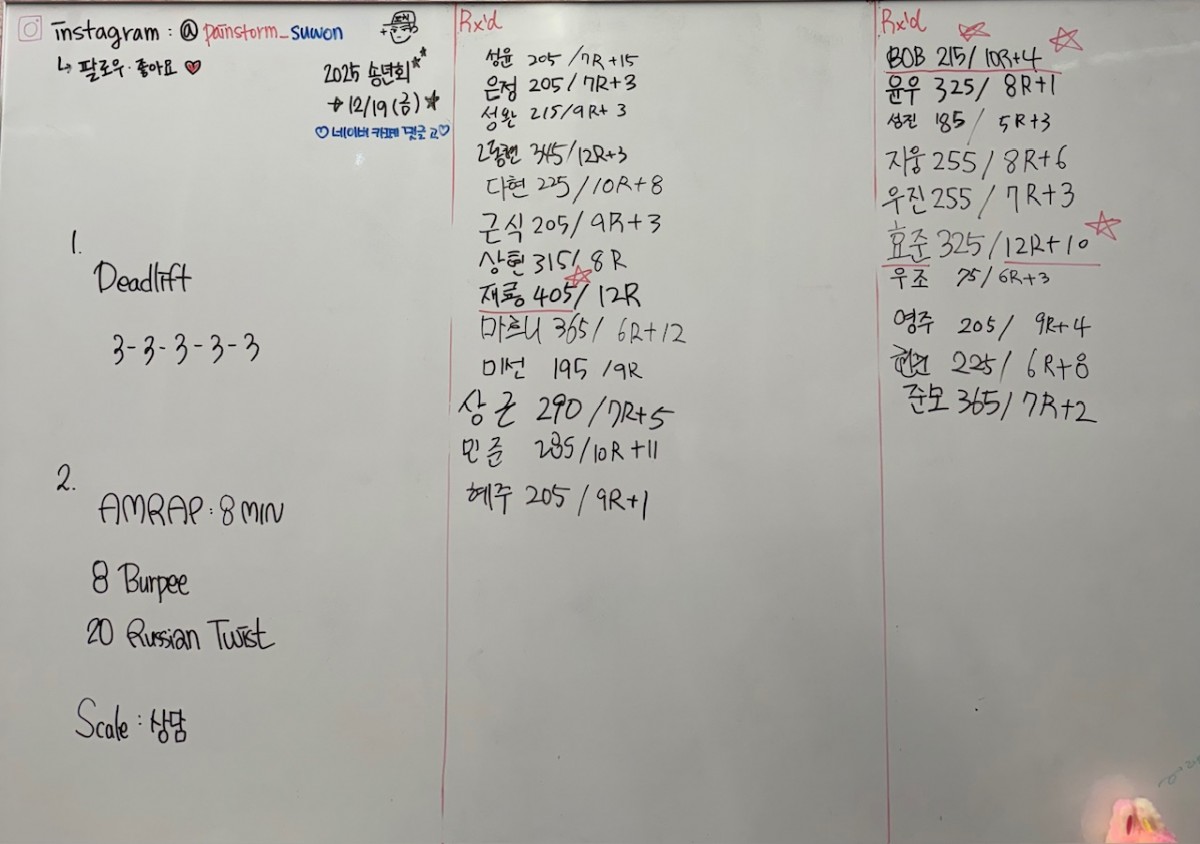 instagram : @ painstorm_suwon
↳ 팔로우·좋아요 ♥
2025 송년회
★ 12/19 (금) ★
♡ 네이버 카페 댓글 고 ♡
1.
Deadlift
3-3-3-3-3
2.
AMRAP : 8 MIN
8 Burpee
20 Russian Twist
Scale : 상담
Rx'd
성윤 205 / 7R+15
은정 205 / 7R+3
성완 215 / 9R+3
345 / 12R+3
다현 225 / 10R+8
근식 205 / 9R+3
상현 315 / 8R
재룡 405 / 12R
마르니 365 / 6R+12
미선 195 / 9R
상근 290 / 7R+5
민준 285 / 10R+11
혜주 205 / 9R+1
Rx'd
BOB 215 / 10R+4
윤우 325 / 8R+1
성진 185 / 5R+3
지웅 255 / 8R+6
우진 255 / 7R+3
효준 325 / 12R+10
우조 75 / 6R+3
영주 205 / 9R+4
225 / 6R+8
준모 365 / 7R+2